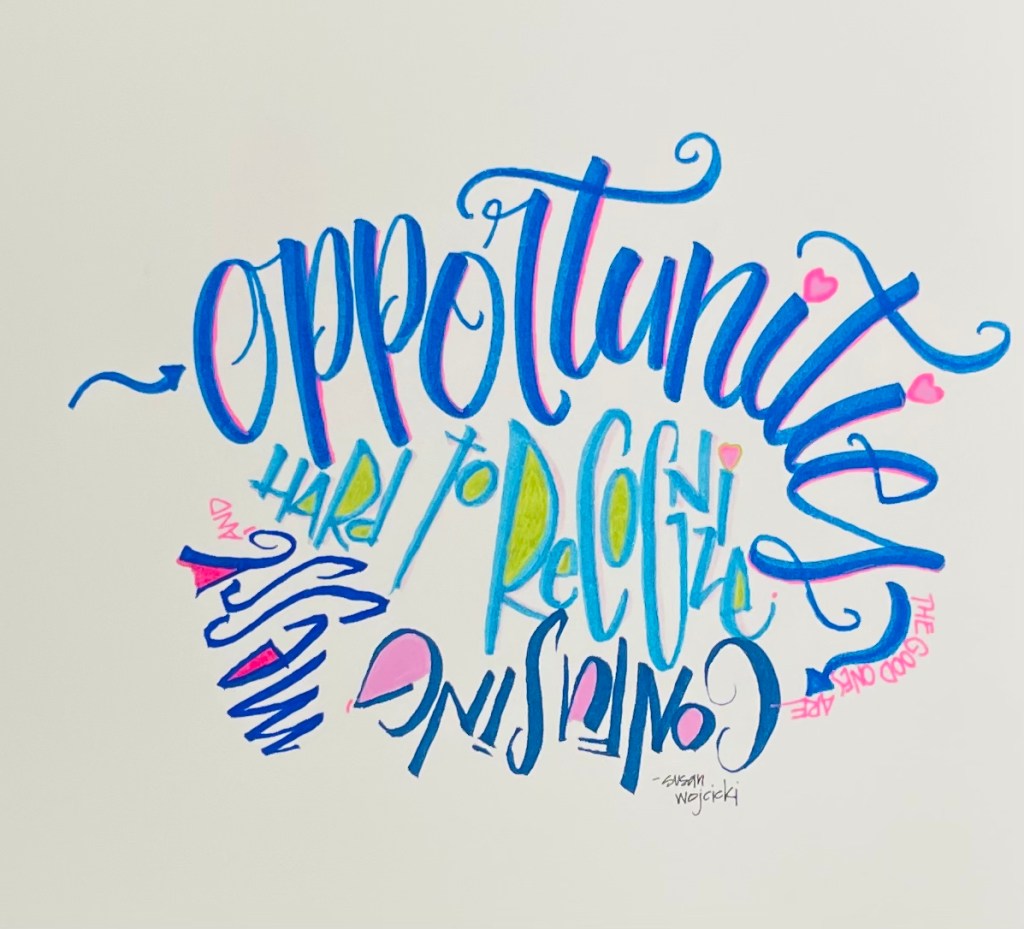 opportunities
THE GOOD ONES ARE
CONFUSING
MESSY
AND
HARd TO ReCOGNiZe.
-susan
wojcicki